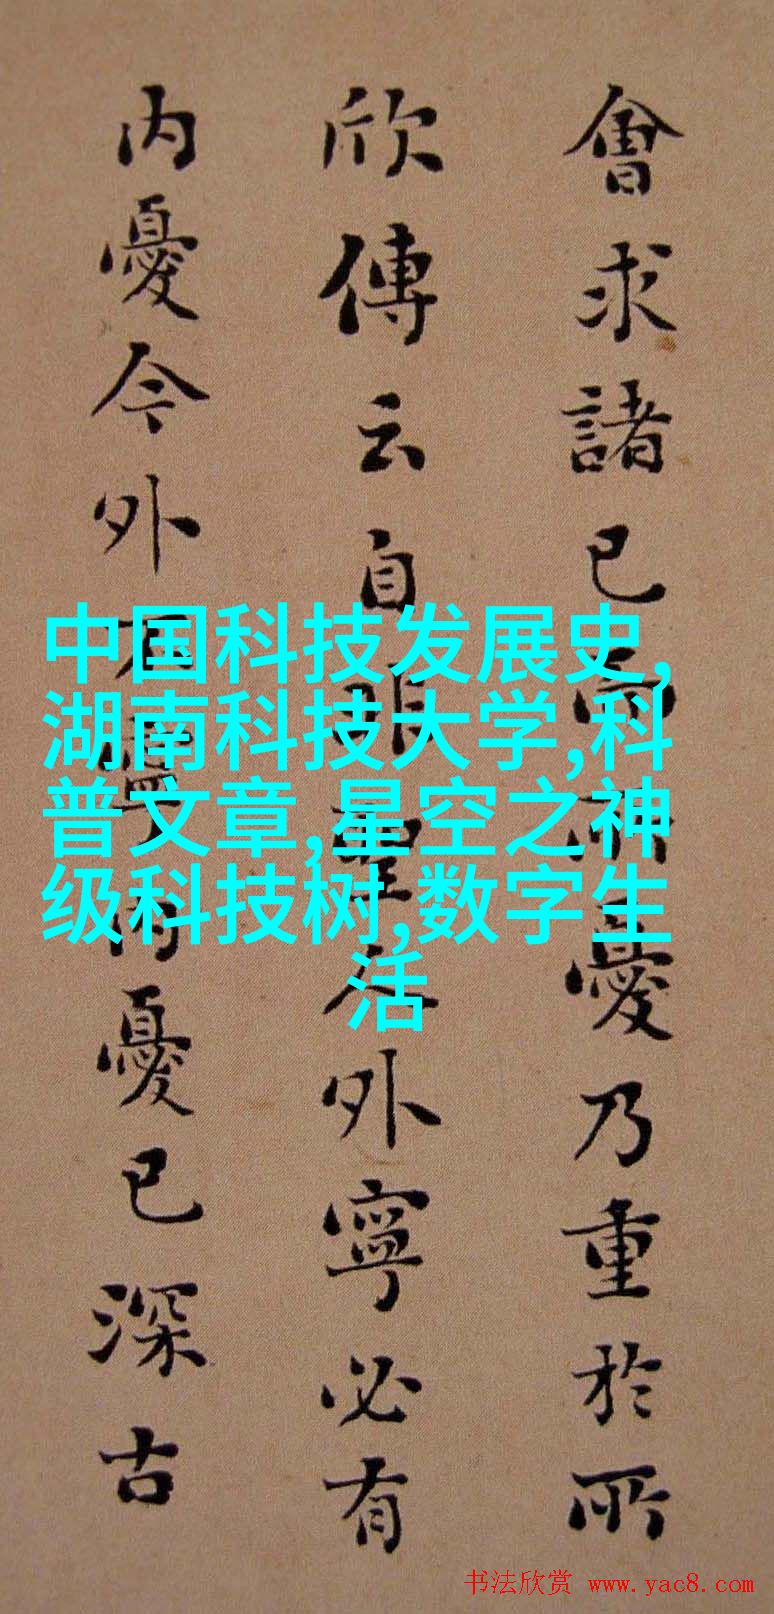 會求諸己而所憂乃重於所
欣傳云自非聖人外寧必有
内憂今外不寧内憂已深古
中国科技发展史,
湖南科技大学,科
普文章,星空之神
级科技树,数字生
活
书法欣赏 www.yac8.com